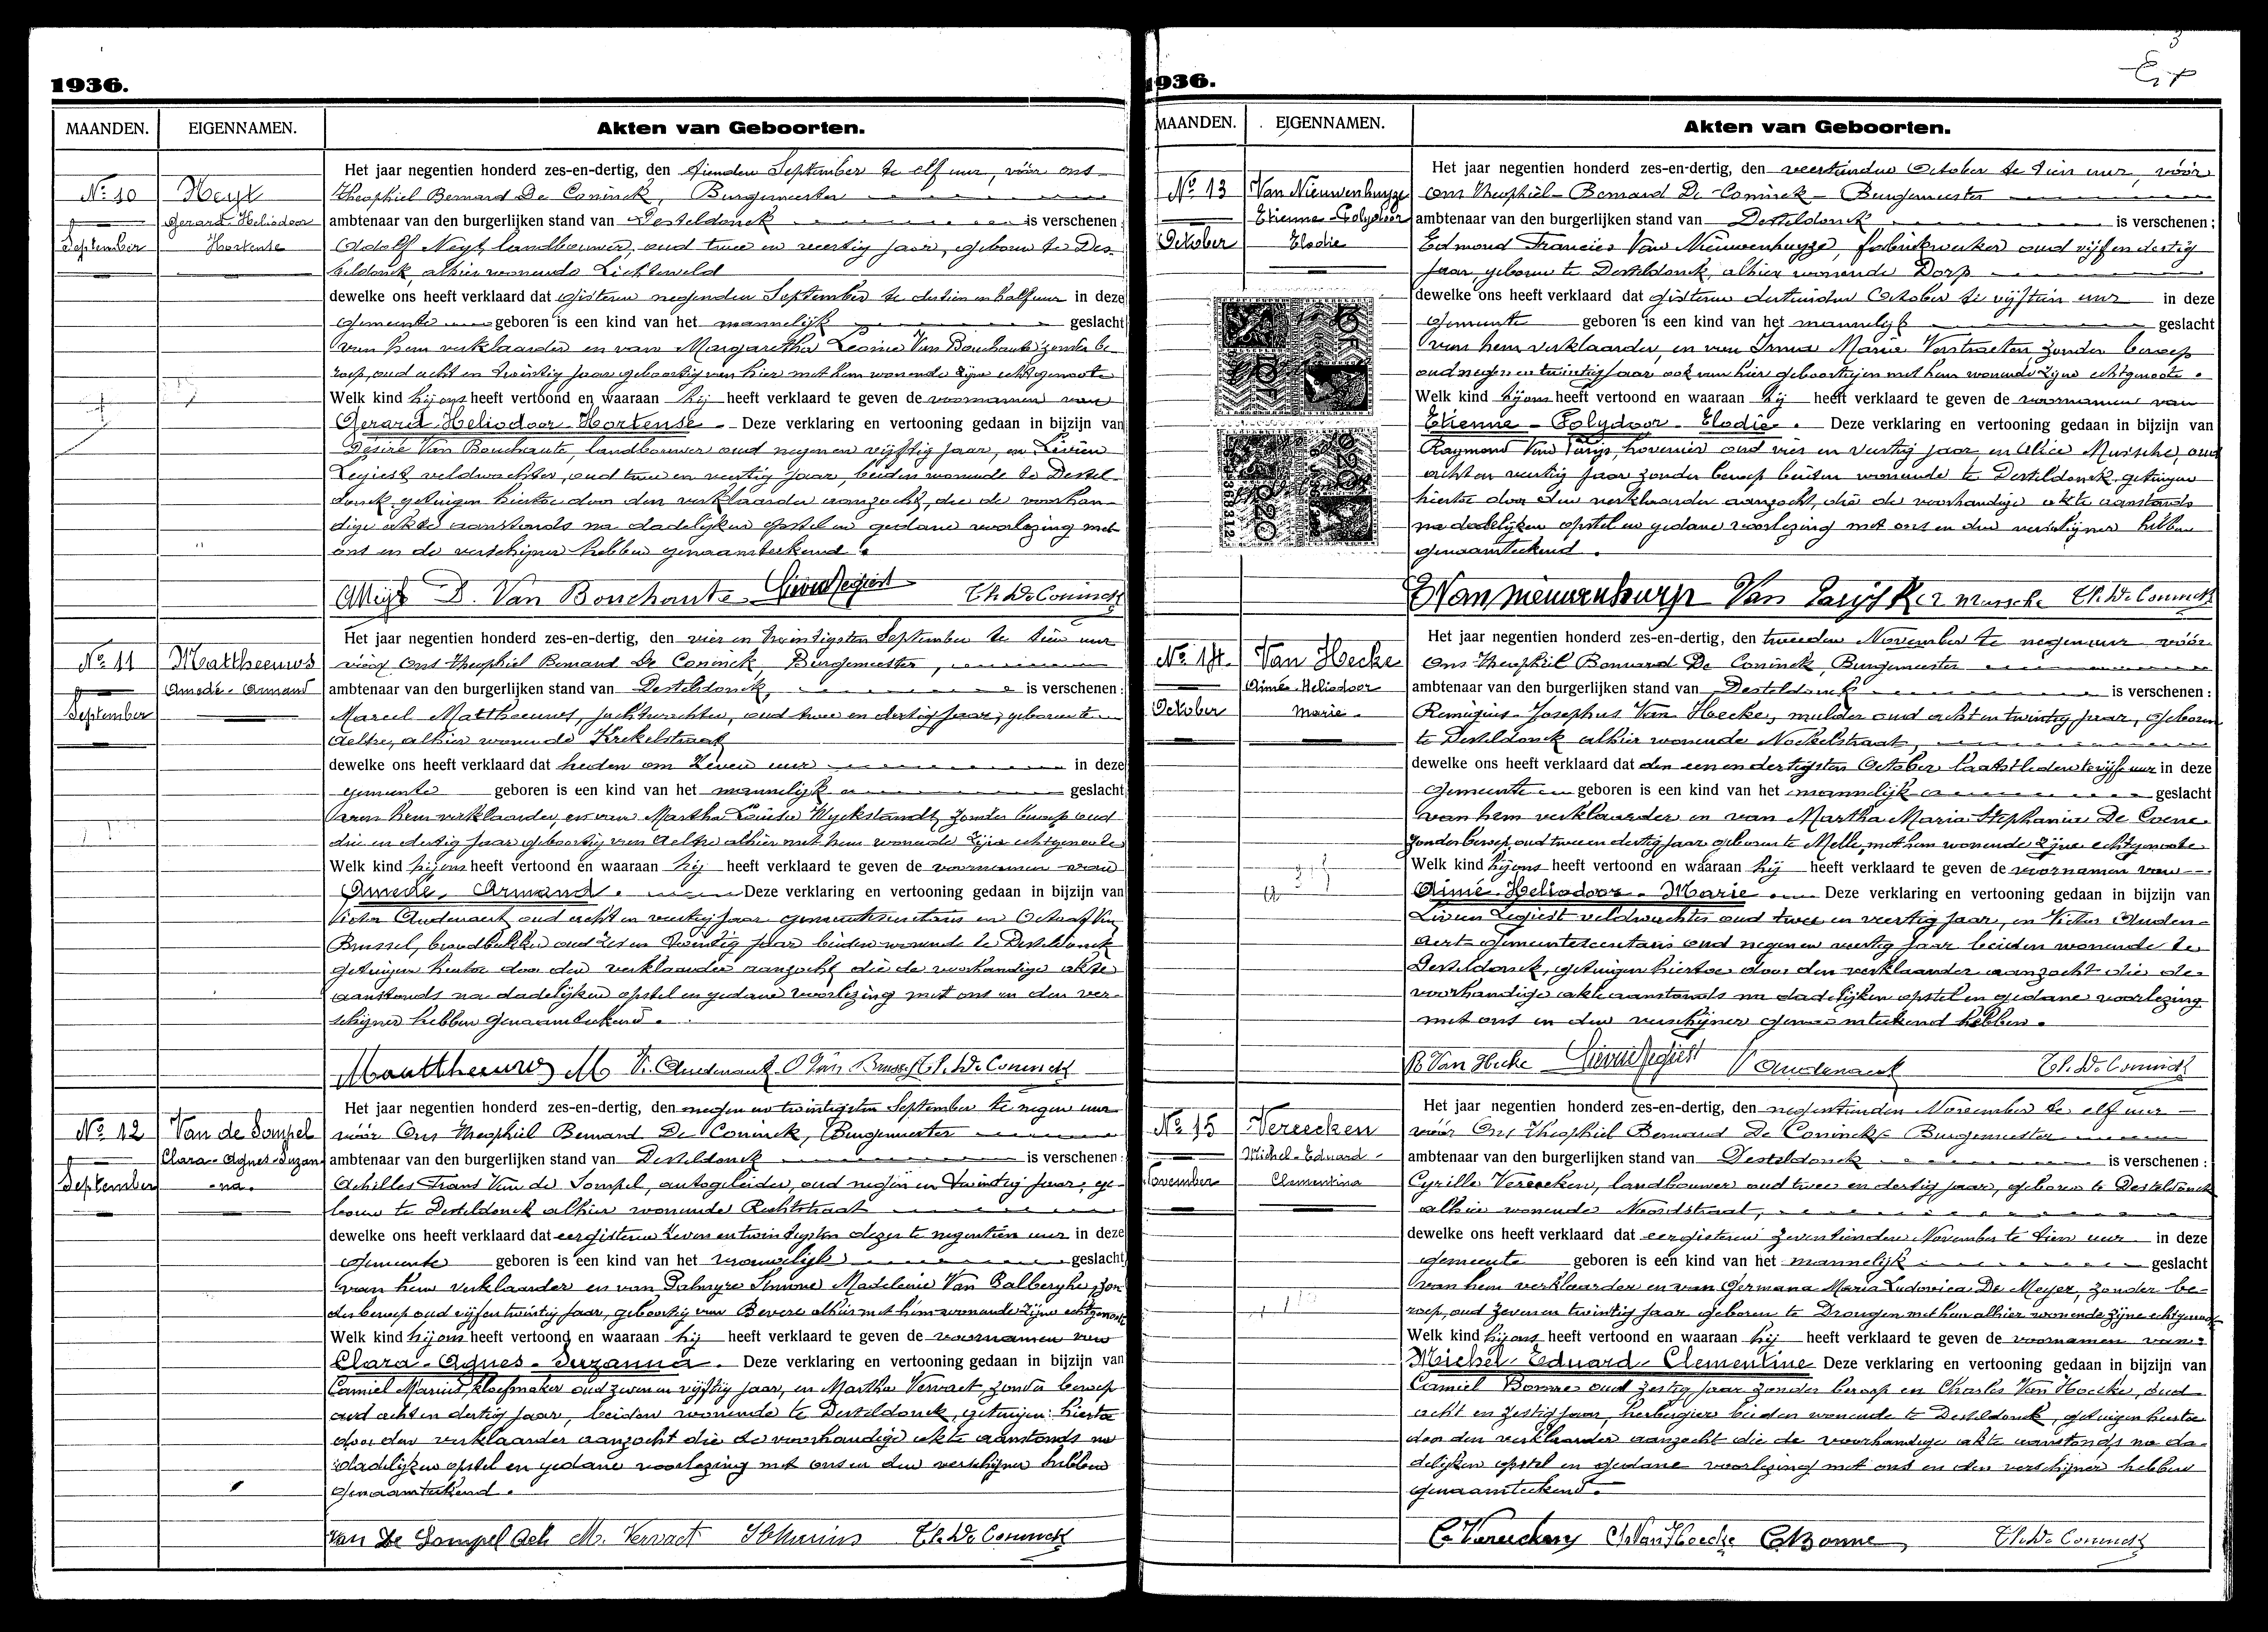 1936.
MAANDEN.
EIGENNAMEN.
Akten van Geboorten.
Nº 10
Neyt
Gerard Heliodoor
Hortense
September
Het jaar negentien honderd zes-en-dertig, den tienden September te elf uur, vóór ons
Theophiel Bernard De Coninck, Burgemeester
ambtenaar van den burgerlijken stand van Desteldonck is verschenen:
Adolf Neyt, landbouwer, oud twee en veertig jaar, geboren te Des-
teldonck, alhier wonende Lichtveld
dewelke ons heeft verklaard dat gisteren negenden September te dertien en half uur in deze
gemeente geboren is een kind van het mannelijk geslacht
van hem verklaarder en van Margaretha Leonie Van Bouchaute zonder be-
roep, oud acht en twintig jaar geboortig van hier met hem wonende zijne echtgenoote
Welk kind hij ons heeft vertoond en waaraan hij heeft verklaard te geven de voornamen van
Gerard Heliodoor Hortense Deze verklaring en vertooning gedaan in bijzijn van
Désiré Van Bouchaute, landbouwer oud negen en vijftig jaar, en Liévin
Legiest veldwachter, oud twee en veertig jaar, beiden wonende te Destel-
donck, getuigen hiertoe door den verklaarder aanzocht, die de voorhan-
dige akte aanstonds na dadelijken opstel en gedane voorlezing met
ons en de verschijner hebben genaamteekend.
D. Van Bouchaute Lievin Legiest Th. De Coninck
Nº 11
Mattheeuws
Amedé-Armand
September
Het jaar negentien honderd zes-en-dertig, den vier en twintigsten September te tien uur
vóór Ons Theophiel Bernard De Coninck, Burgemeester,
ambtenaar van den burgerlijken stand van Desteldonck, is verschenen:
Marcel Mattheeuws, jachtwachter, oud twee en dertig jaar, geboren te
Aeltre, alhier wonende Krekelstraat
dewelke ons heeft verklaard dat heden om zeven uur in deze
gemeente geboren is een kind van het mannelijk geslacht
van hem verklaarder, en van Martha Louisa Wyckstandt zonder beroep oud
drie en dertig jaar geboortig van Aeltre alhier met hem wonende zijne echtgenoote
Welk kind hij ons heeft vertoond en waaraan hij heeft verklaard te geven de voornamen van
Amedé, Armand. Deze verklaring en vertooning gedaan in bijzijn van
Victor Audenaert oud acht en veertig jaar gemeentesecretaris en Octaaf Van
Brussel, broodbakker oud zes en twintig jaar beiden wonende te Desteldonck
getuigen hiertoe door den verklaarder aanzocht die de voorhandige akte
aanstonds na dadelijken opstel en gedane voorlezing met ons en den ver-
schijner hebben genaamteekend.
Mattheeuws M V. Audenaert O Van Brussel Th. De Coninck
Nº 12
Van de Sompel
Clara-Agnes-Suzan
-na.
September
Het jaar negentien honderd zes-en-dertig, den negen en twintigsten September te negen uur
vóór Ons Theophiel Bernard De Coninck, Burgemeester
ambtenaar van den burgerlijken stand van Desteldonck is verschenen:
Achilles Frans Van de Sompel, autogeleider, oud negen en twintig jaar, ge-
boren te Desteldonck alhier wonende Rechtstraat
dewelke ons heeft verklaard dat eergisteren zeven en twintigsten dezer te negentien uur in deze
gemeente geboren is een kind van het vrouwelijk geslacht
van hem verklaarder en van Palmyre Simone Madeleine Van Balberghe, zon
der beroep oud vijf en twintig jaar, geboortig van Bevere alhier met hem wonende zijne echtgenoote
Welk kind hij ons heeft vertoond en waaraan hij heeft verklaard te geven de voornamen van
Clara-Agnes-Suzanna. Deze verklaring en vertooning gedaan in bijzijn van
Camiel Marius, kloefmaker oud zeven en vijftig jaar, en Martha Vervaet zonder beroep
oud acht en dertig jaar, beiden wonende te Desteldonck, getuigen hiertoe
door den verklaarder aanzocht die de voorhandige akte aanstonds na
dadelijken opstel en gedane voorlezing met ons en den verschijner hebben
genaamteekend.
Van De Sompel Ach M. Vervaet Th. De Coninck
1936.
3
MAANDEN.
EIGENNAMEN.
Akten van Geboorten.
Nº 13
Van Nieuwenhuyze
Etienne-Polydoor
Elodie
October
Het jaar negentien honderd zes-en-dertig, den veertienden October te tien uur, vóór
Ons Theophiel-Bernard De Coninck Burgemeester
ambtenaar van den burgerlijken stand van Desteldonck is verschenen:
Edmond Francies Van Nieuwenhuyze, fabriekwerker oud vijf en dertig
jaar, geboren te Desteldonck, alhier wonende Dorp
dewelke ons heeft verklaard dat gisteren dertienden October te vijftien uur in deze
gemeente geboren is een kind van het mannelijk geslacht
van hem verklaarder, en van Irma Marie Verstraeten, zonder beroep
oud negen en twintig jaar ook van hier geboortig en met hem wonende zijne echtgenoote.
Welk kind hij ons heeft vertoond en waaraan hij heeft verklaard te geven de voornamen van
Etienne-Polydoor-Elodie. Deze verklaring en vertooning gedaan in bijzijn van
Raymond Van Parys, hovenier oud vier en veertig jaar, en Alice Mussche, oud
acht en veertig jaar zonder beroep beiden wonende te Desteldonck, getuigen
hiertoe door den verklaarder aanzocht, die de voorhandige akte aanstonds
na dadelijken opstel en gedane voorlezing met ons en den verschijner hebben
genaamteekend.
Th. De Coninck
Nº 14.
Van Hecke
Aimé-Heliodoor
Marie.
October
Het jaar negentien honderd zes-en-dertig, den tweeden November te negen uur vóór
Ons Theophiel Bernard De Coninck, Burgemeester
ambtenaar van den burgerlijken stand van Desteldonck is verschenen:
Remigius-Josephus Van Hecke, mulder oud acht en twintig jaar, geboren
te Desteldonck alhier wonende Nockelstraat,
dewelke ons heeft verklaard dat den een en dertigsten October laatstleden te vijf uur in deze
gemeente geboren is een kind van het mannelijk geslacht
van hem verklaarder en van Martha Maria Stephania De Coene
zonder beroep, oud twee en dertig jaar geboren te Melle, met hem wonende zijne echtgenoote
Welk kind hij ons heeft vertoond en waaraan hij heeft verklaard te geven de voornamen van
Aimé-Heliodoor-Marie. Deze verklaring en vertooning gedaan in bijzijn van
Lievin Legiest veldwachter oud twee en veertig jaar, en Victor Auden-
aert gemeentesecretaris oud negen en veertig jaar beiden wonende te
Desteldonck, getuigen hiertoe door den verklaarder aanzocht die de
voorhandige akte aanstonds na dadelijken opstel en gedane voorlezing
met ons en den verschijner genaamteekend hebben.
R Van Hecke Lievin Legiest V Audenaert Th. De Coninck
Nº 15
Vereecken
Michel-Eduard-
Clementina
November
Het jaar negentien honderd zes-en-dertig, den negentienden November te elf uur
vóór Ons Theophiel Bernard De Coninck Burgemeester
ambtenaar van den burgerlijken stand van Desteldonck is verschenen:
Cyrille Vereecken, landbouwer oud twee en dertig jaar, geboren te Desteldonck
alhier wonende Noordstraat,
dewelke ons heeft verklaard dat eergisteren zeventienden November te tien uur in deze
gemeente geboren is een kind van het mannelijk geslacht
van hem verklaarder en van Germana Maria Ludovica De Meyer, zonder be-
roep, oud zeven en twintig jaar geboren te Drongen met hem alhier wonende zijne echtgenoote
Welk kind hij ons heeft vertoond en waaraan hij heeft verklaard te geven de voornamen van:
Michel-Eduard-Clementine Deze verklaring en vertooning gedaan in bijzijn van
Camiel Bonne oud zestig jaar zonder beroep en Charles Van Hoecke, oud
acht en zestig jaar, herbergier beiden wonende te Desteldonck, getuigen hiertoe
door den verklaarder aanzocht die de voorhandige akte aanstonds na da-
delijken opstel en gedane voorlezing met ons en den verschijner hebben
genaamteekend.
C. Vereecken Ch Van Hoecke C Bonne Th. De Coninck